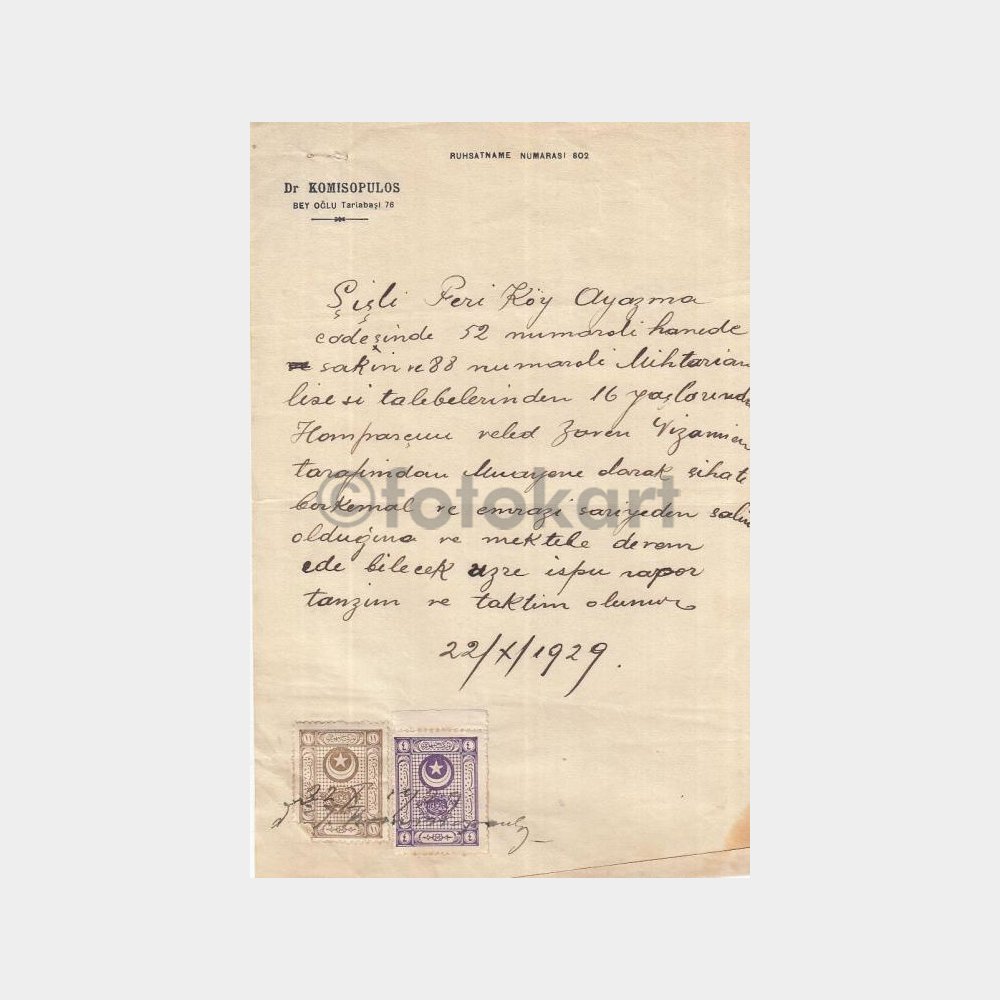 RUHSATNAME NUMARASI 802
Dr KOMISOPULOS
BEY OĞLU Tarlabaşi 76
Şişli Feri Köy Ayazma
codeşinde 52 numaroli hanede
sakin ve 88 numaroli Mihtarian
lise si talebelerinden 16 yaşlorında
veled Zaven
tarafimdan Muayene olarak şihati
berkemal ve emrazi sariyeden salim
olduğina ve mektebe devam
ede bilecek uzre ispu rapor
tanzim ve taktim olunur
22/X/1929.
©fotokart